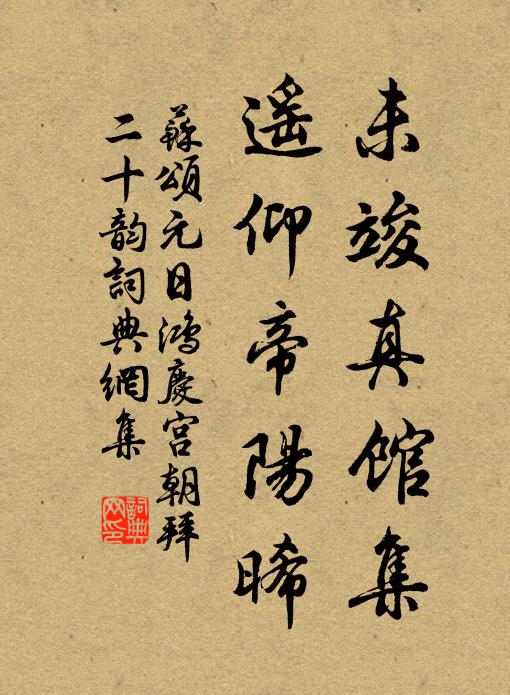 未竣真馆集
遥仰帝陽晞
蘇頌元日鴻慶宮朝拜
二十韵詞典網集
詞典
网印